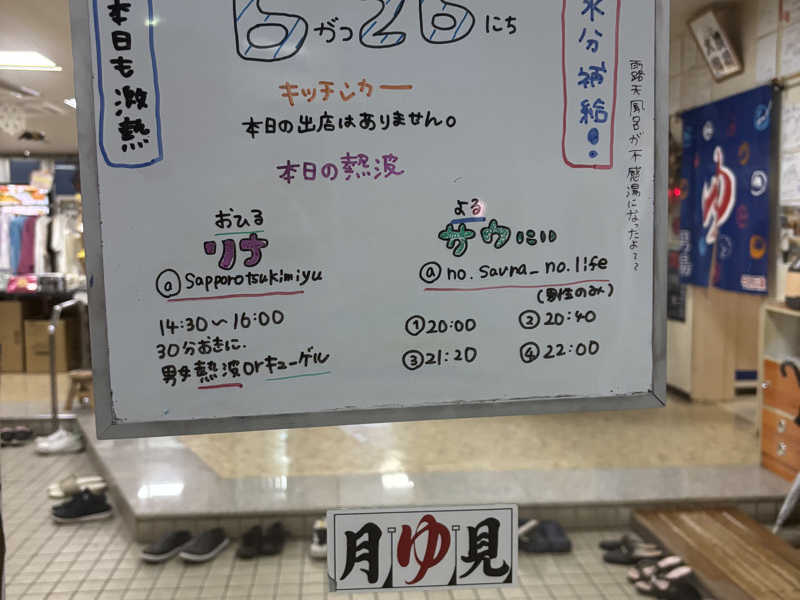 本日も激熱
6がつ26にち
水分補給!!
キッチンカー
本日の出店はありません。
本日の熱波
おひる
リナ
@sapporotsukimiyu
14:30〜16:00
30分おきに.
男女熱波orキューゲル
よる
サウにい
@no.sauna_no.life
(男性のみ)
①20:00 ②20:40
③21:20 ④22:00
露天風呂が不感湯になったよ
ゆ
月ゆ見